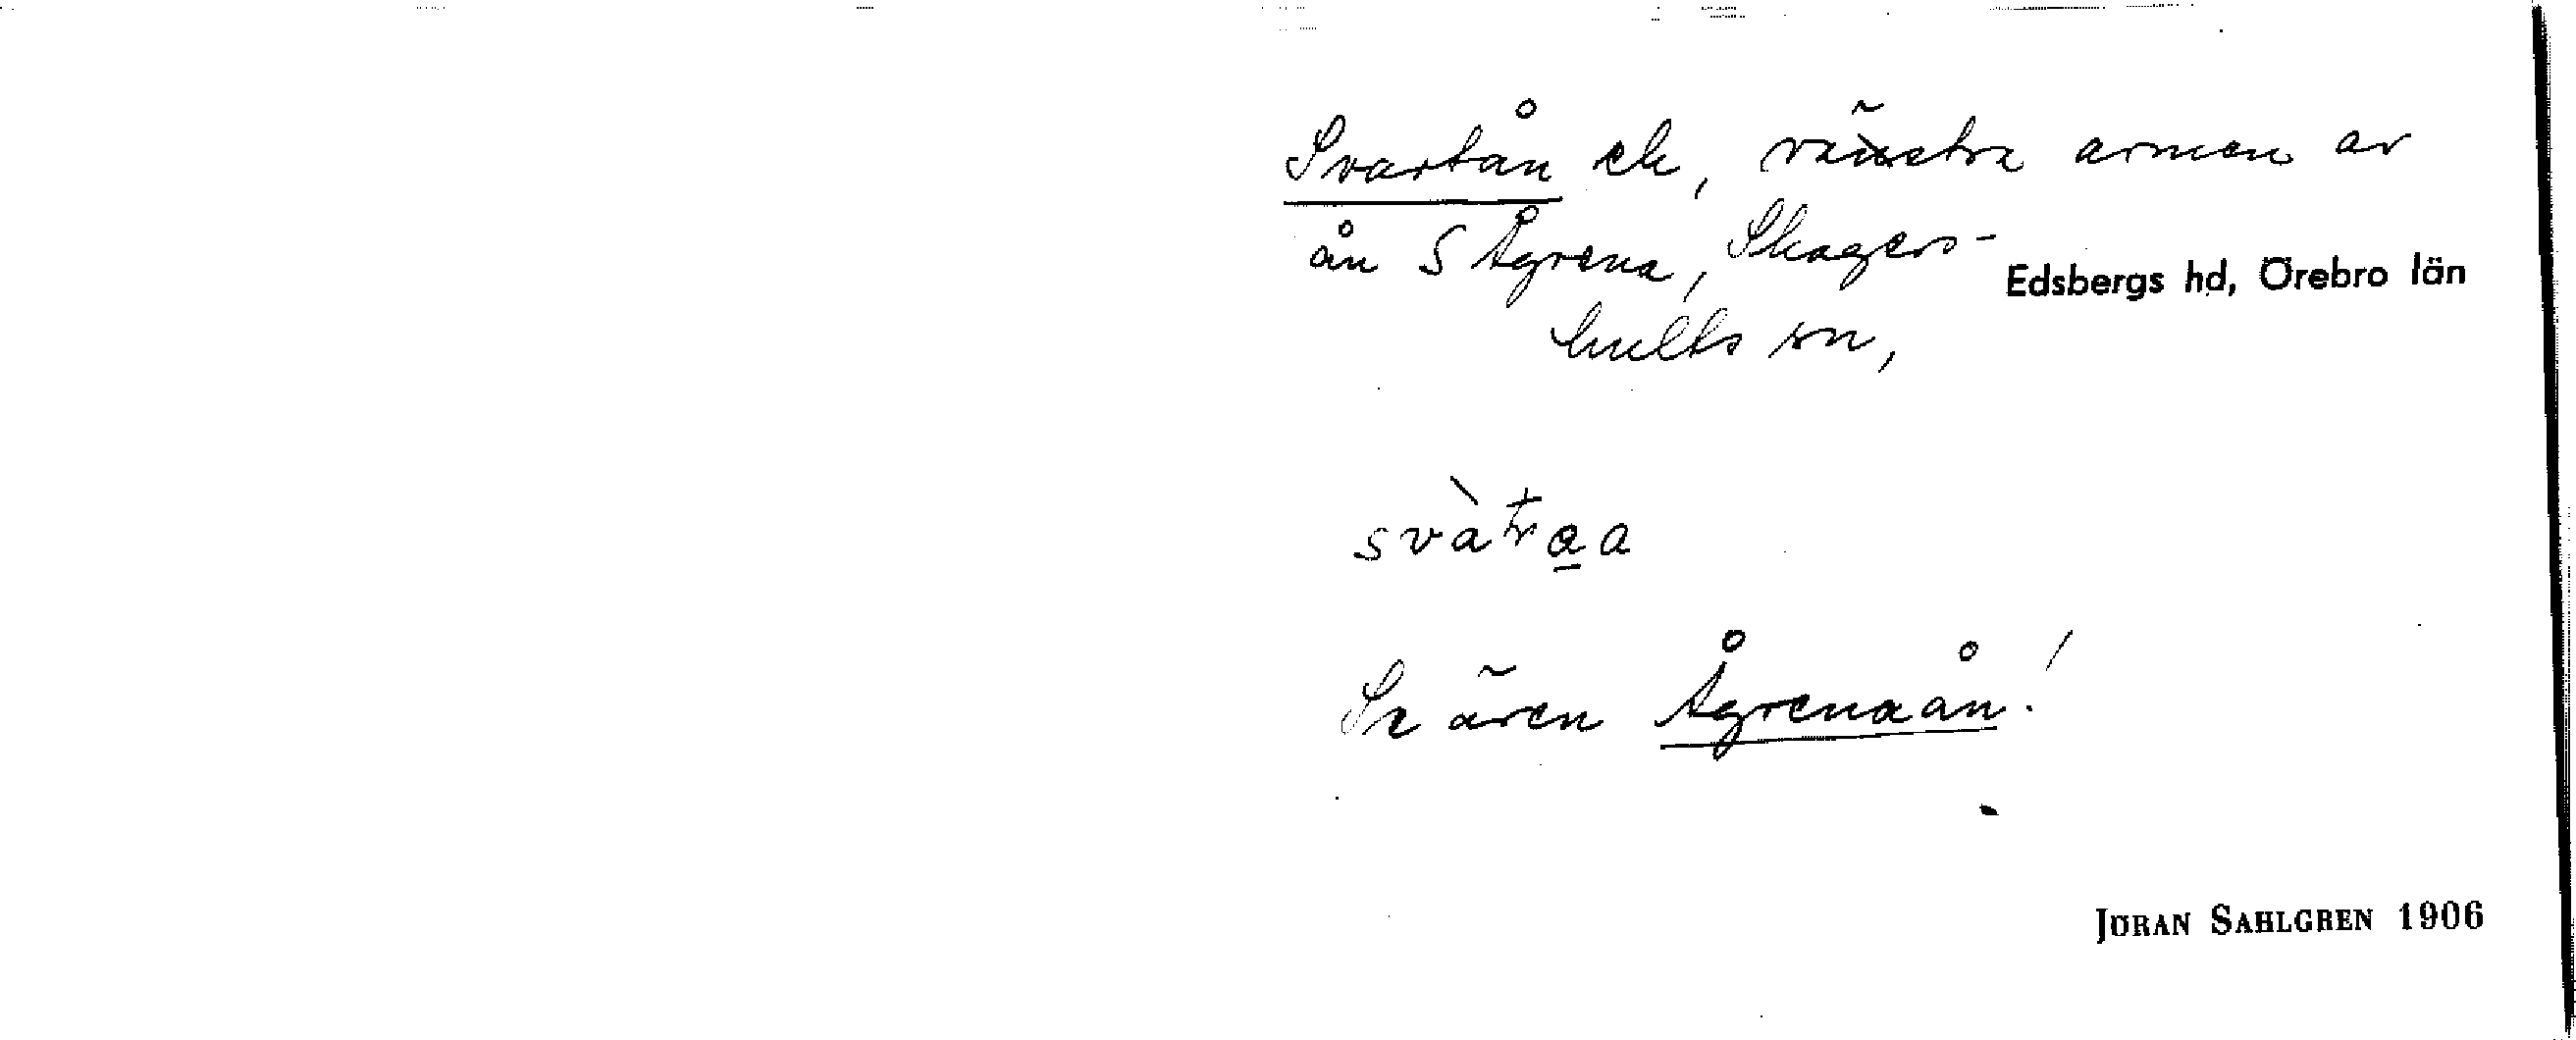 Svartån el, vänstra armen av
ån S Ågrena, Skagers-
Edsbergs hd, Örebro län
hults sn,
Se även Ågrenaån!
JÖRAN SAHLGREN 1906